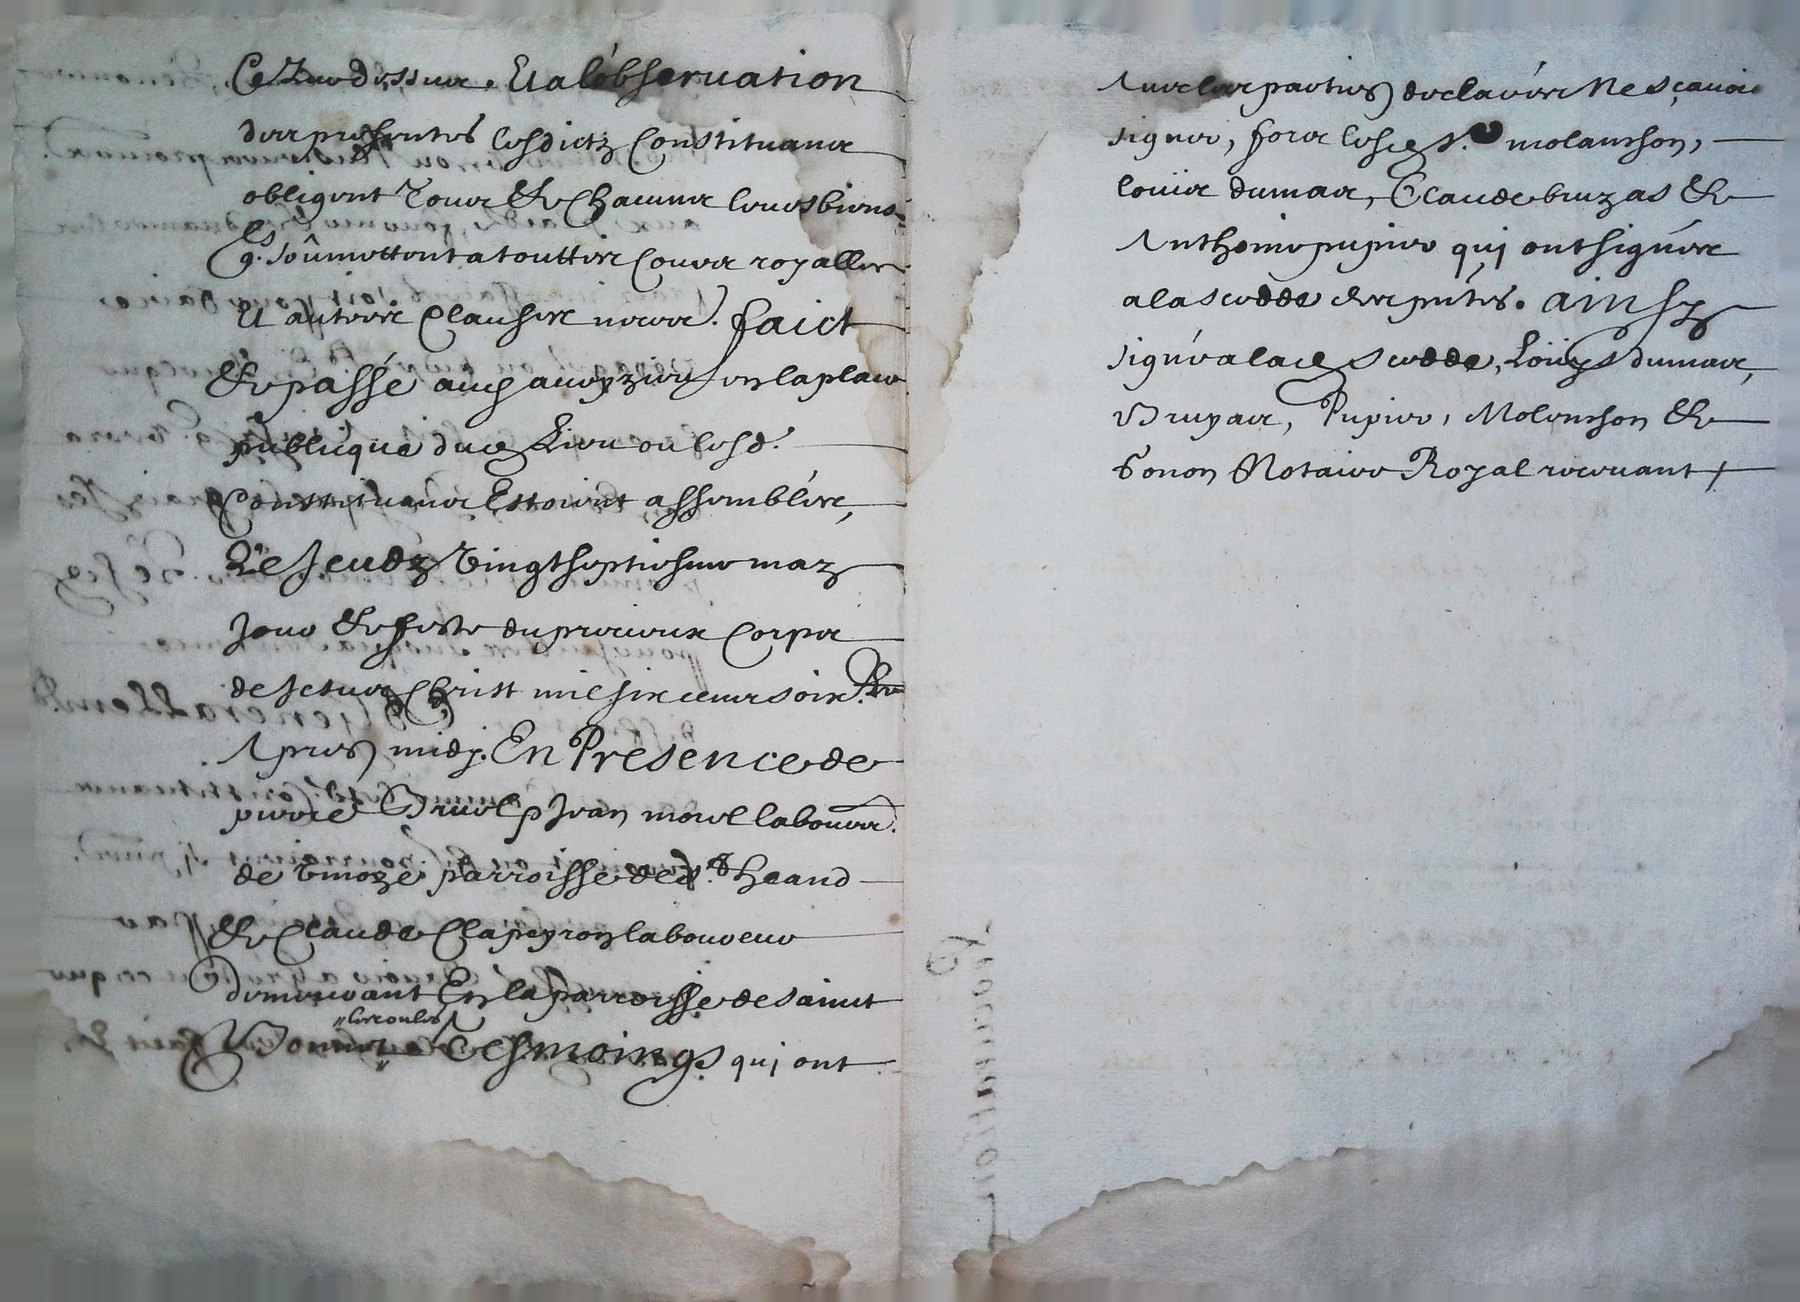 Ce que dessus. Et a l'observation
des presentes lesdictz Constituans
obligent tous & chacuns leurs biens
Soûmettent a touttes Cours royalles
Et autres Clauses necess.res faict
& passé au en la place
publicque dud. Lieu ou lesd.
Constituans Estoient assemblés,
Le Jeudy vingt septiesme may
Jour & feste du precieux Corps
de Jesus Christ mil six cens soix.te
Apres midy. En Presence de
pierre Jean morel labour.
de parroisse de St heand
& Claude Clapeyron laboureur
demeurant En la parroisse de sainct
Bonnet les oules Tesmoings qui ont
Avec les parties declaré Ne sçavoir
signer, fors lesd. Sr. molanson,
louis dumas, Claude bruyas &
Anthoine pupier qui ont signés
a la scedde des pntes. ainsy
signé a lad. scedde, Loüys dumas,
Bruyas, Pupier, Molenson &
Notaire Royal recevant